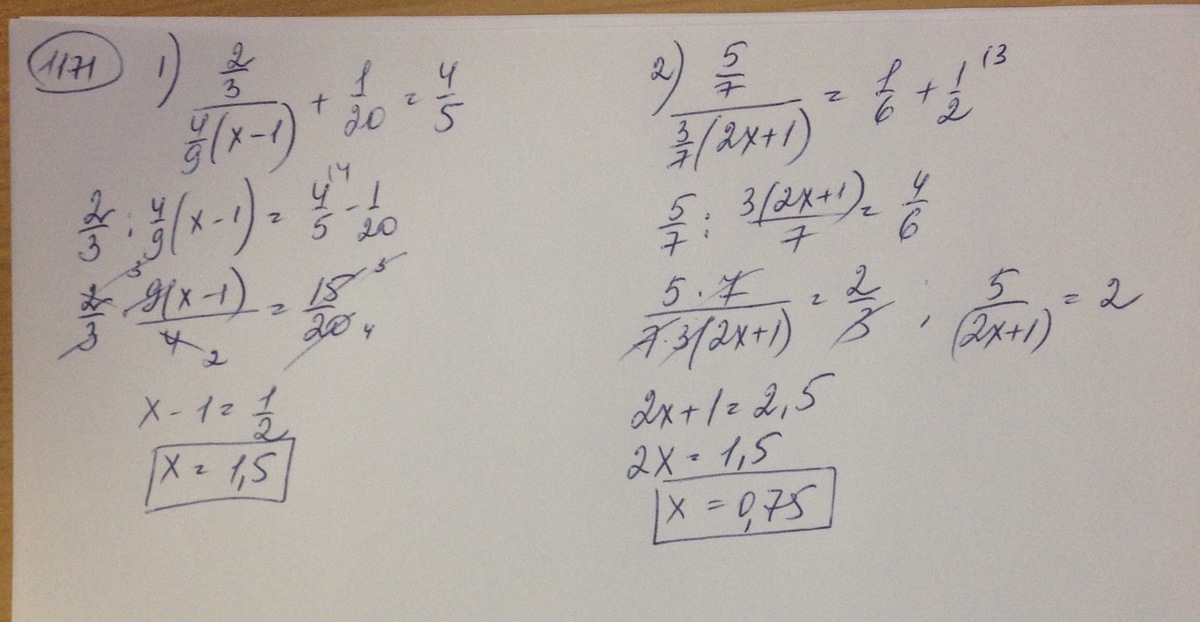 1171
1) (2/3)/(4/9(x-1)) + 1/20 = 4/5
2/3 : 4/9(x-1) = 4/5 \4 - 1/20
2/3 · 9(x-1)/4 = 15/20 3 3 2 5 4
x-1 = 1/2
x = 1,5
2) (5/7)/(3/7(2x+1)) = 1/6 + 1/2 \3
5/7 : 3(2x+1)/7 = 4/6
5·7/(7·3(2x+1)) = 2/3 ; 5/(2x+1) = 2
2x+1 = 2,5
2x = 1,5
x = 0,75